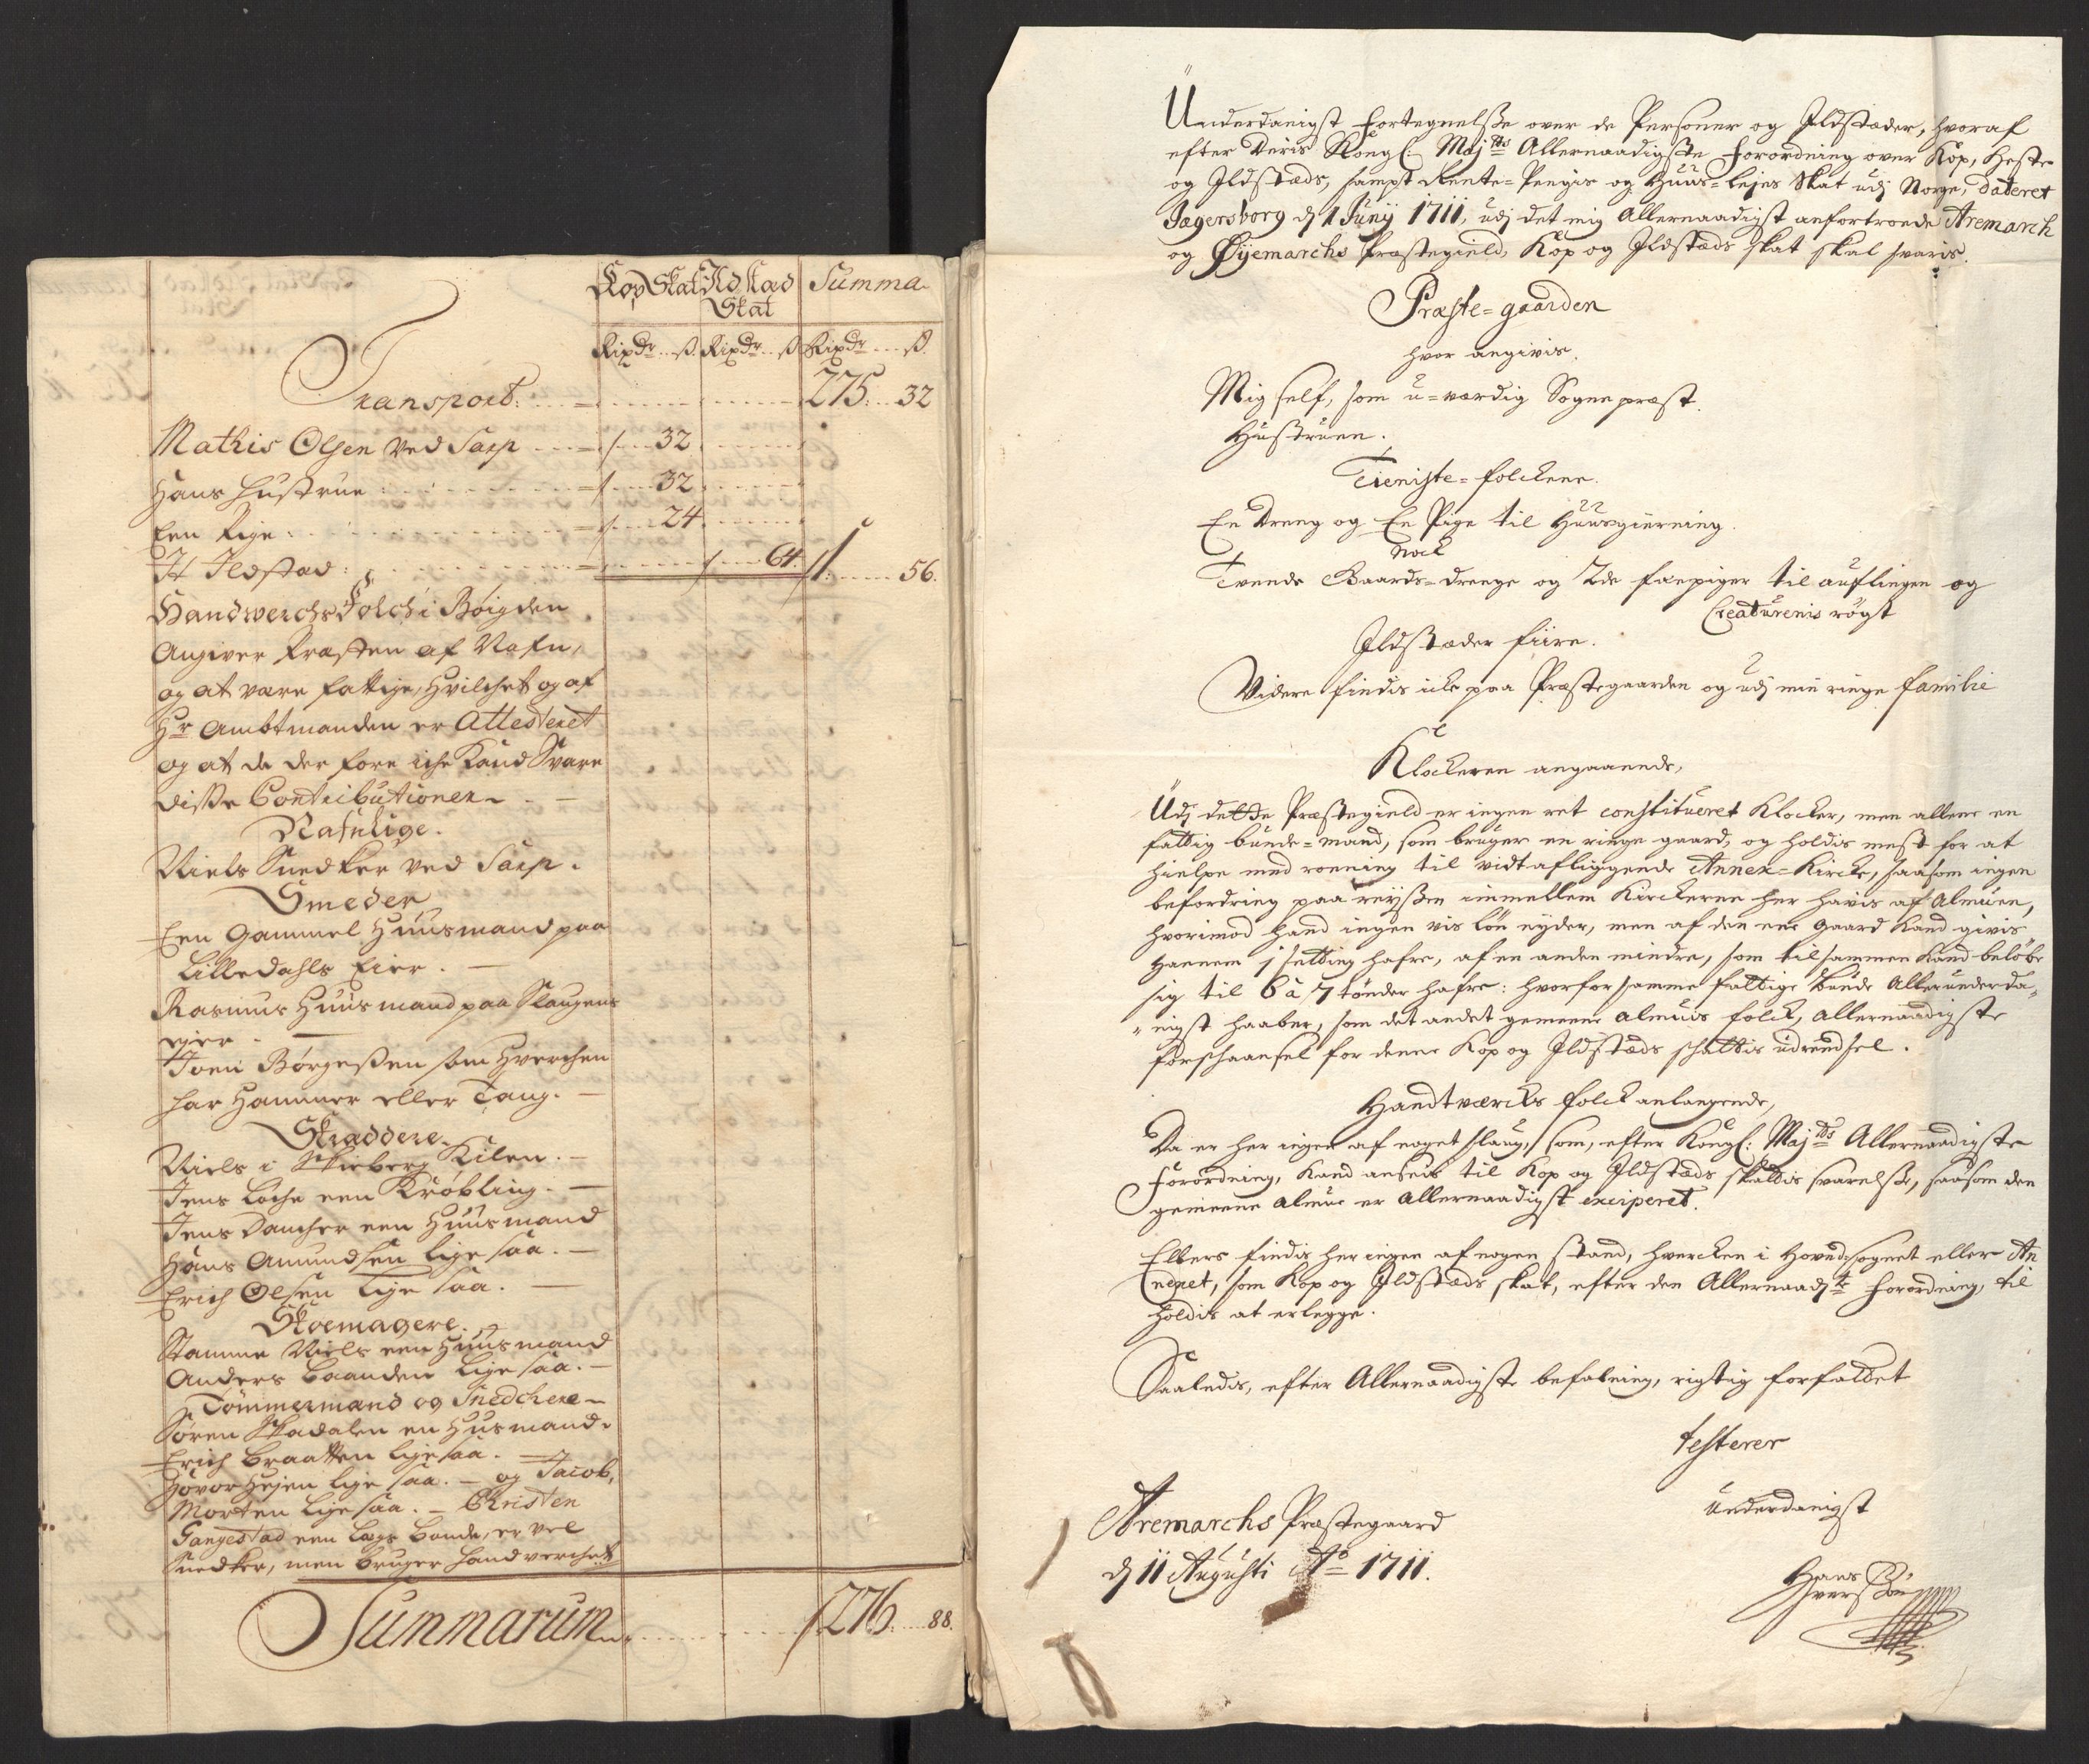 Kop Skat Ild Stad Summa
Skat
Rixdr. ß. Rixdr. ß Rixdr. ß.
Transport. 275. 32
Mathis Olsen ved Sarp 32
Hans Hustrue 32
Een Pige 24
It Ildstad 64. 1. 56.
Handwerchs Folch i Bøigden
Angiver Præsten af Nafn,
og at være fattige, hvilchet og af
Hr Ambtmanden er Attesteret
og at de der fore iche Kand Svare
disse Contributioner
Nafnlige.
Niels Snedker ved Sarp.
Smeder
Een Gammel Huusmand paa
Lilledahls Eier.
Rasmus Huusmand paa Haugens
eier
Joen Børgesen som hverchen
har Hammer eller Tang.
Skræddere
Niels i Skieberg Kilen.
Jens Loche een Krøbling.
Jens Dancher een Huusmand
Hans Amundsen lige saa.
Erich Olsen lige saa.
Skoemagere.
Stamme Niels een Huusmand
Anders Baanden lige saa.
Tømmermand og Snedchere
Søren Skadalen en Husmand.
Erich Braatten lige saa.
Hovor Hejen lige saa. og Jacob,
Morten lige saa. Christen
Gangestad een Lægs Bonde, er vel
Snedker, men bruger Handverchet
Summarum 276. 88.
Underdanigst Fortegnelsse over de Personer og Ildstæder, hvoraf
efter Deris Kongl: Majts Allernaadigste Forordning over Kop, Heste
og Ildstæds, sampt Rente-Pengis og Huus-lejes Skat udj Norge, dateret
Jagersborg d 1 Junij 1711, udj det mig Allernaadigst anfortroede Aremarch
og Øyemarchs Præstegield, Kop og Ildstæds skat skal svaris.
Præste-gaarden
hvor angivis.
Mig self, som u-værdig Sognepræst.
Hustruen.
Tieniste-folckene.
En Dreng og En Pige til Huusgierning.
Nock
Tvende Gaards-drenge og 2de faepiger til auflingen og
Creaturenis røgt
Ildstæder fiire.
Videre findis icke paa Præstegaarden og udj min ringe familie
Klockeren angaaende,
Udj dette Præstegield er ingen ret constitueret Klocker, men allene en
fattig bunde-mand, som bruger en ringe gaard, og holdis mest for at
hielpe med roening til vidt afliggende Annex-Kircke, saasom ingen
befordring paa reyssen imellem Kirckerne her havis af Almuen,
hvorimod hand ingen vis løn nyder, men af den ene gaard kand givis
hannem 1 setting hafre, af en anden mindre, som tilsammen kand beløbe
sig til 6 à 7 tønder hafre: hvorfor samme fattige bunde Allerunderda-
nigst haaber, som det andet gemeene almuis folck, allernaadigste
forschaansel for denne Kop og Ildstæds schattis udreedsel.
Handtværcks folck anlangende,
Da er her ingen af noget slaug, som, efter Kongl: Majts Allernaadigste
Forordning, kand ansees til Kop og Ildstæds skattis svarelsse, saasom den
gemeene almue er allernaadigst exciperet.
Ellers findis her ingen af nogen stand, hvercken i Hoved-sognet eller An
nexet, som Kop og Ildstæds skat, efter den Allernaadste Forordning, til
holdis at erlegge.
Saaledis, efter Allernaadigste befalning, rigtig forfattet
testerer
Underdanigst
Aremarchs Præstegaard
d 11 Augusti Ao 1711.
Hans
Iverssøn